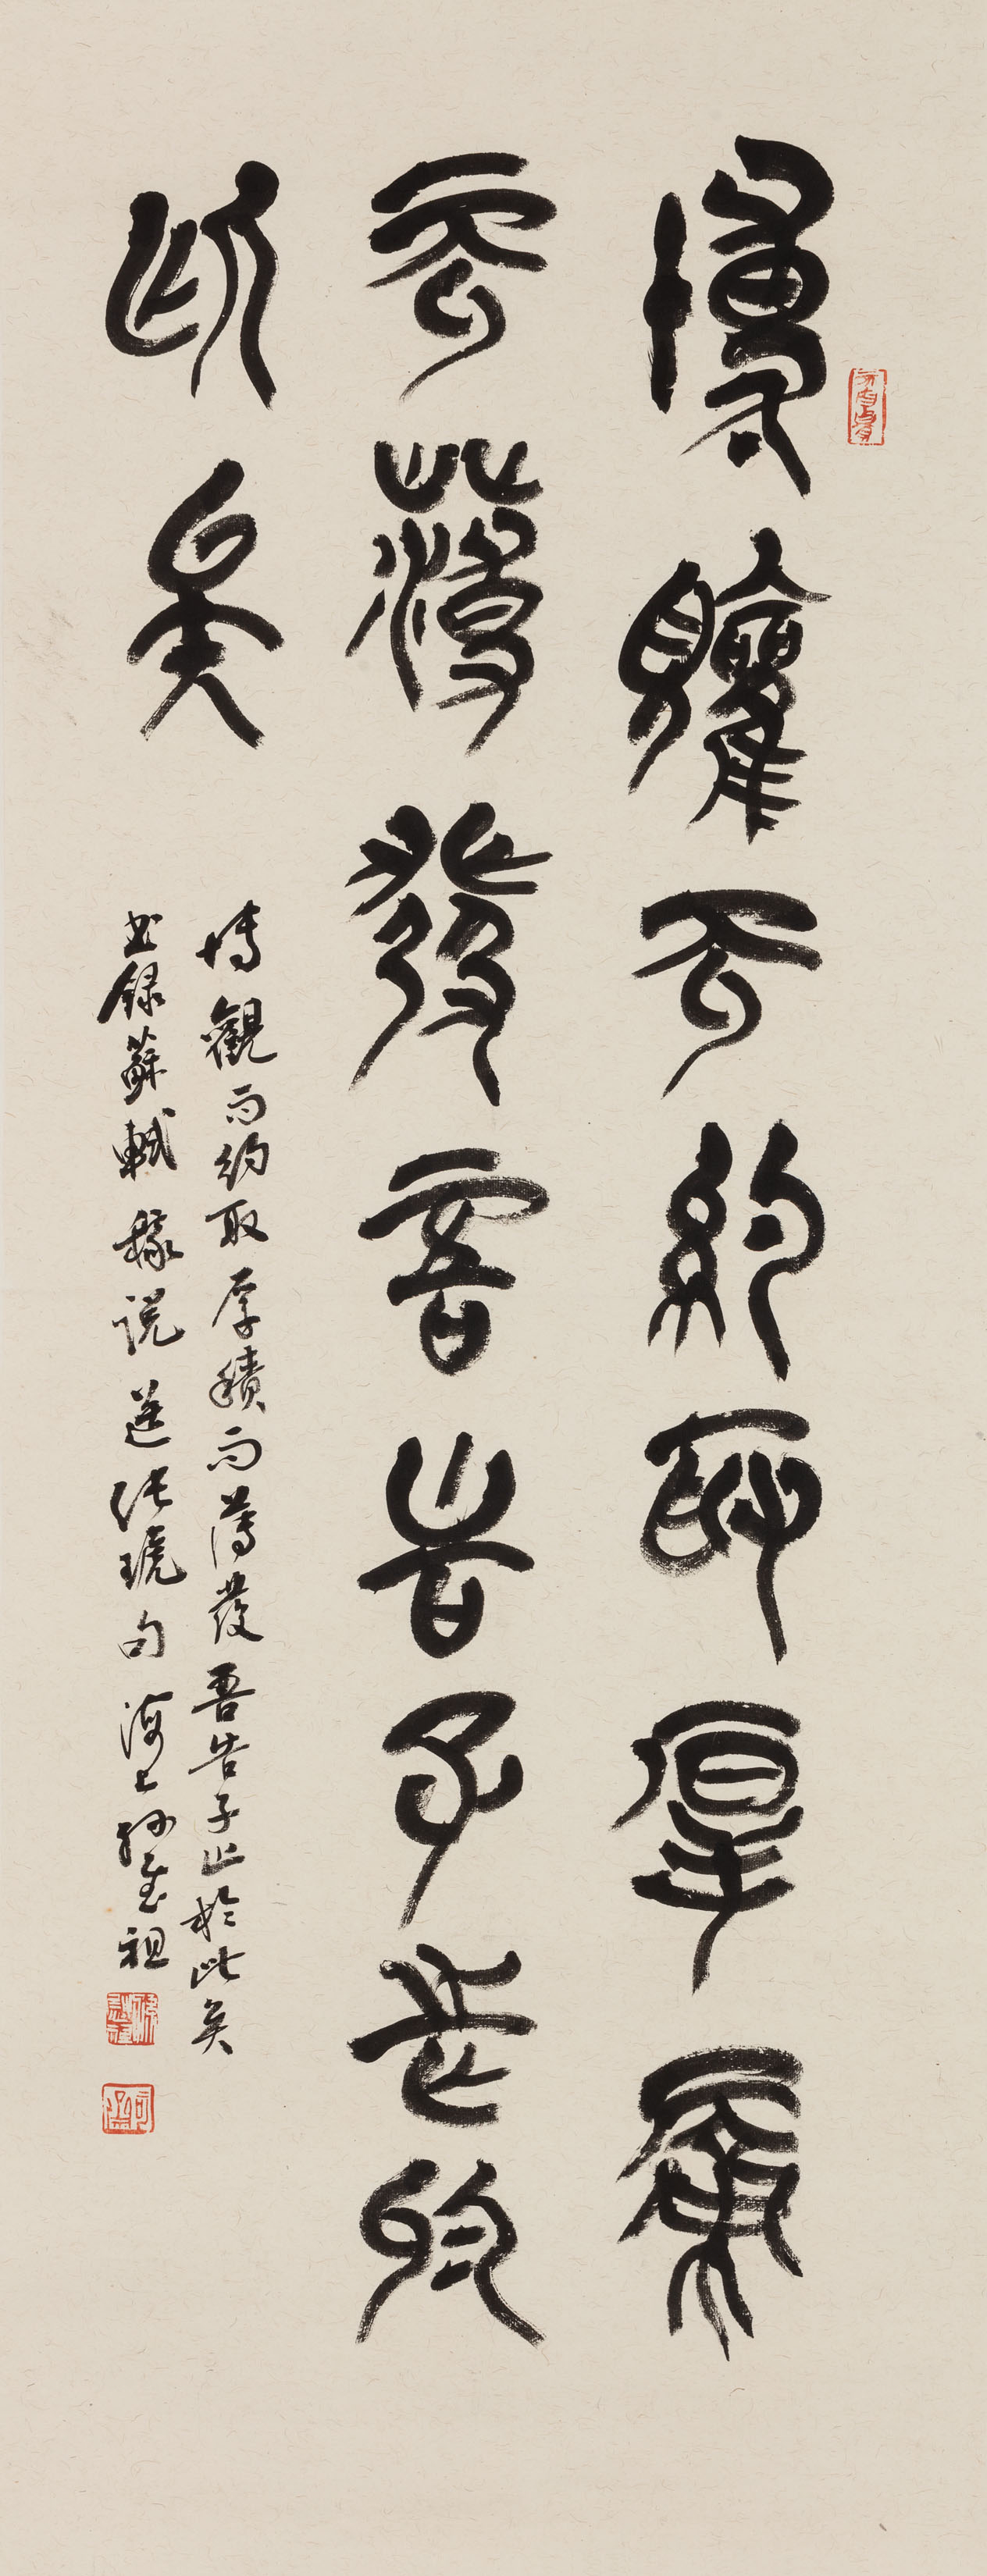 博觀而約取厚積
而薄發吾告子止於
此矣
博觀而約取厚積而薄發吾告子止於此矣
書錄蘇軾稼說送張琥句海上孫慰祖